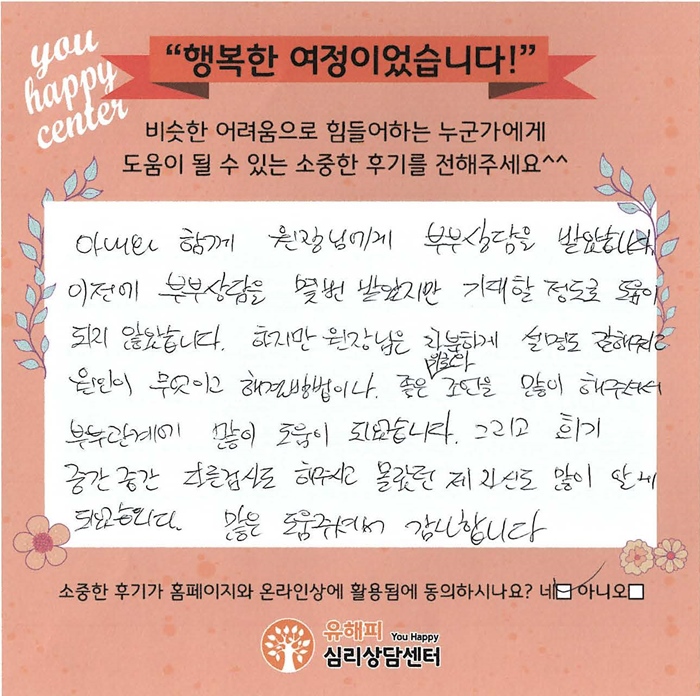 you
happy
center
“행복한 여정이었습니다!”
비슷한 어려움으로 힘들어하는 누군가에게
도움이 될 수 있는 소중한 후기를 전해주세요^^
아내와 함께 원장님에게 부부상담을 받았습니다.
이전에 부부상담을 몇번 받았지만 기대할 정도로 도움이
되지 않았습니다. 하지만 원장님은 차분하게 설명도 잘해주시고
원인이 무엇이고 해결방법이나. 좋은 위로와 조언을 많이 해주셔서
부부관계에 많이 도움이 되었습니다. 그리고
중간 중간 다른검사도 해주시고 몰랐던 제 자신도 많이 알게
되었습니다. 많은 도움주셔서 감사합니다
소중한 후기가 홈페이지와 온라인상에 활용됨에 동의하시나요? 네 아니오
유해피 You Happy
심리상담센터